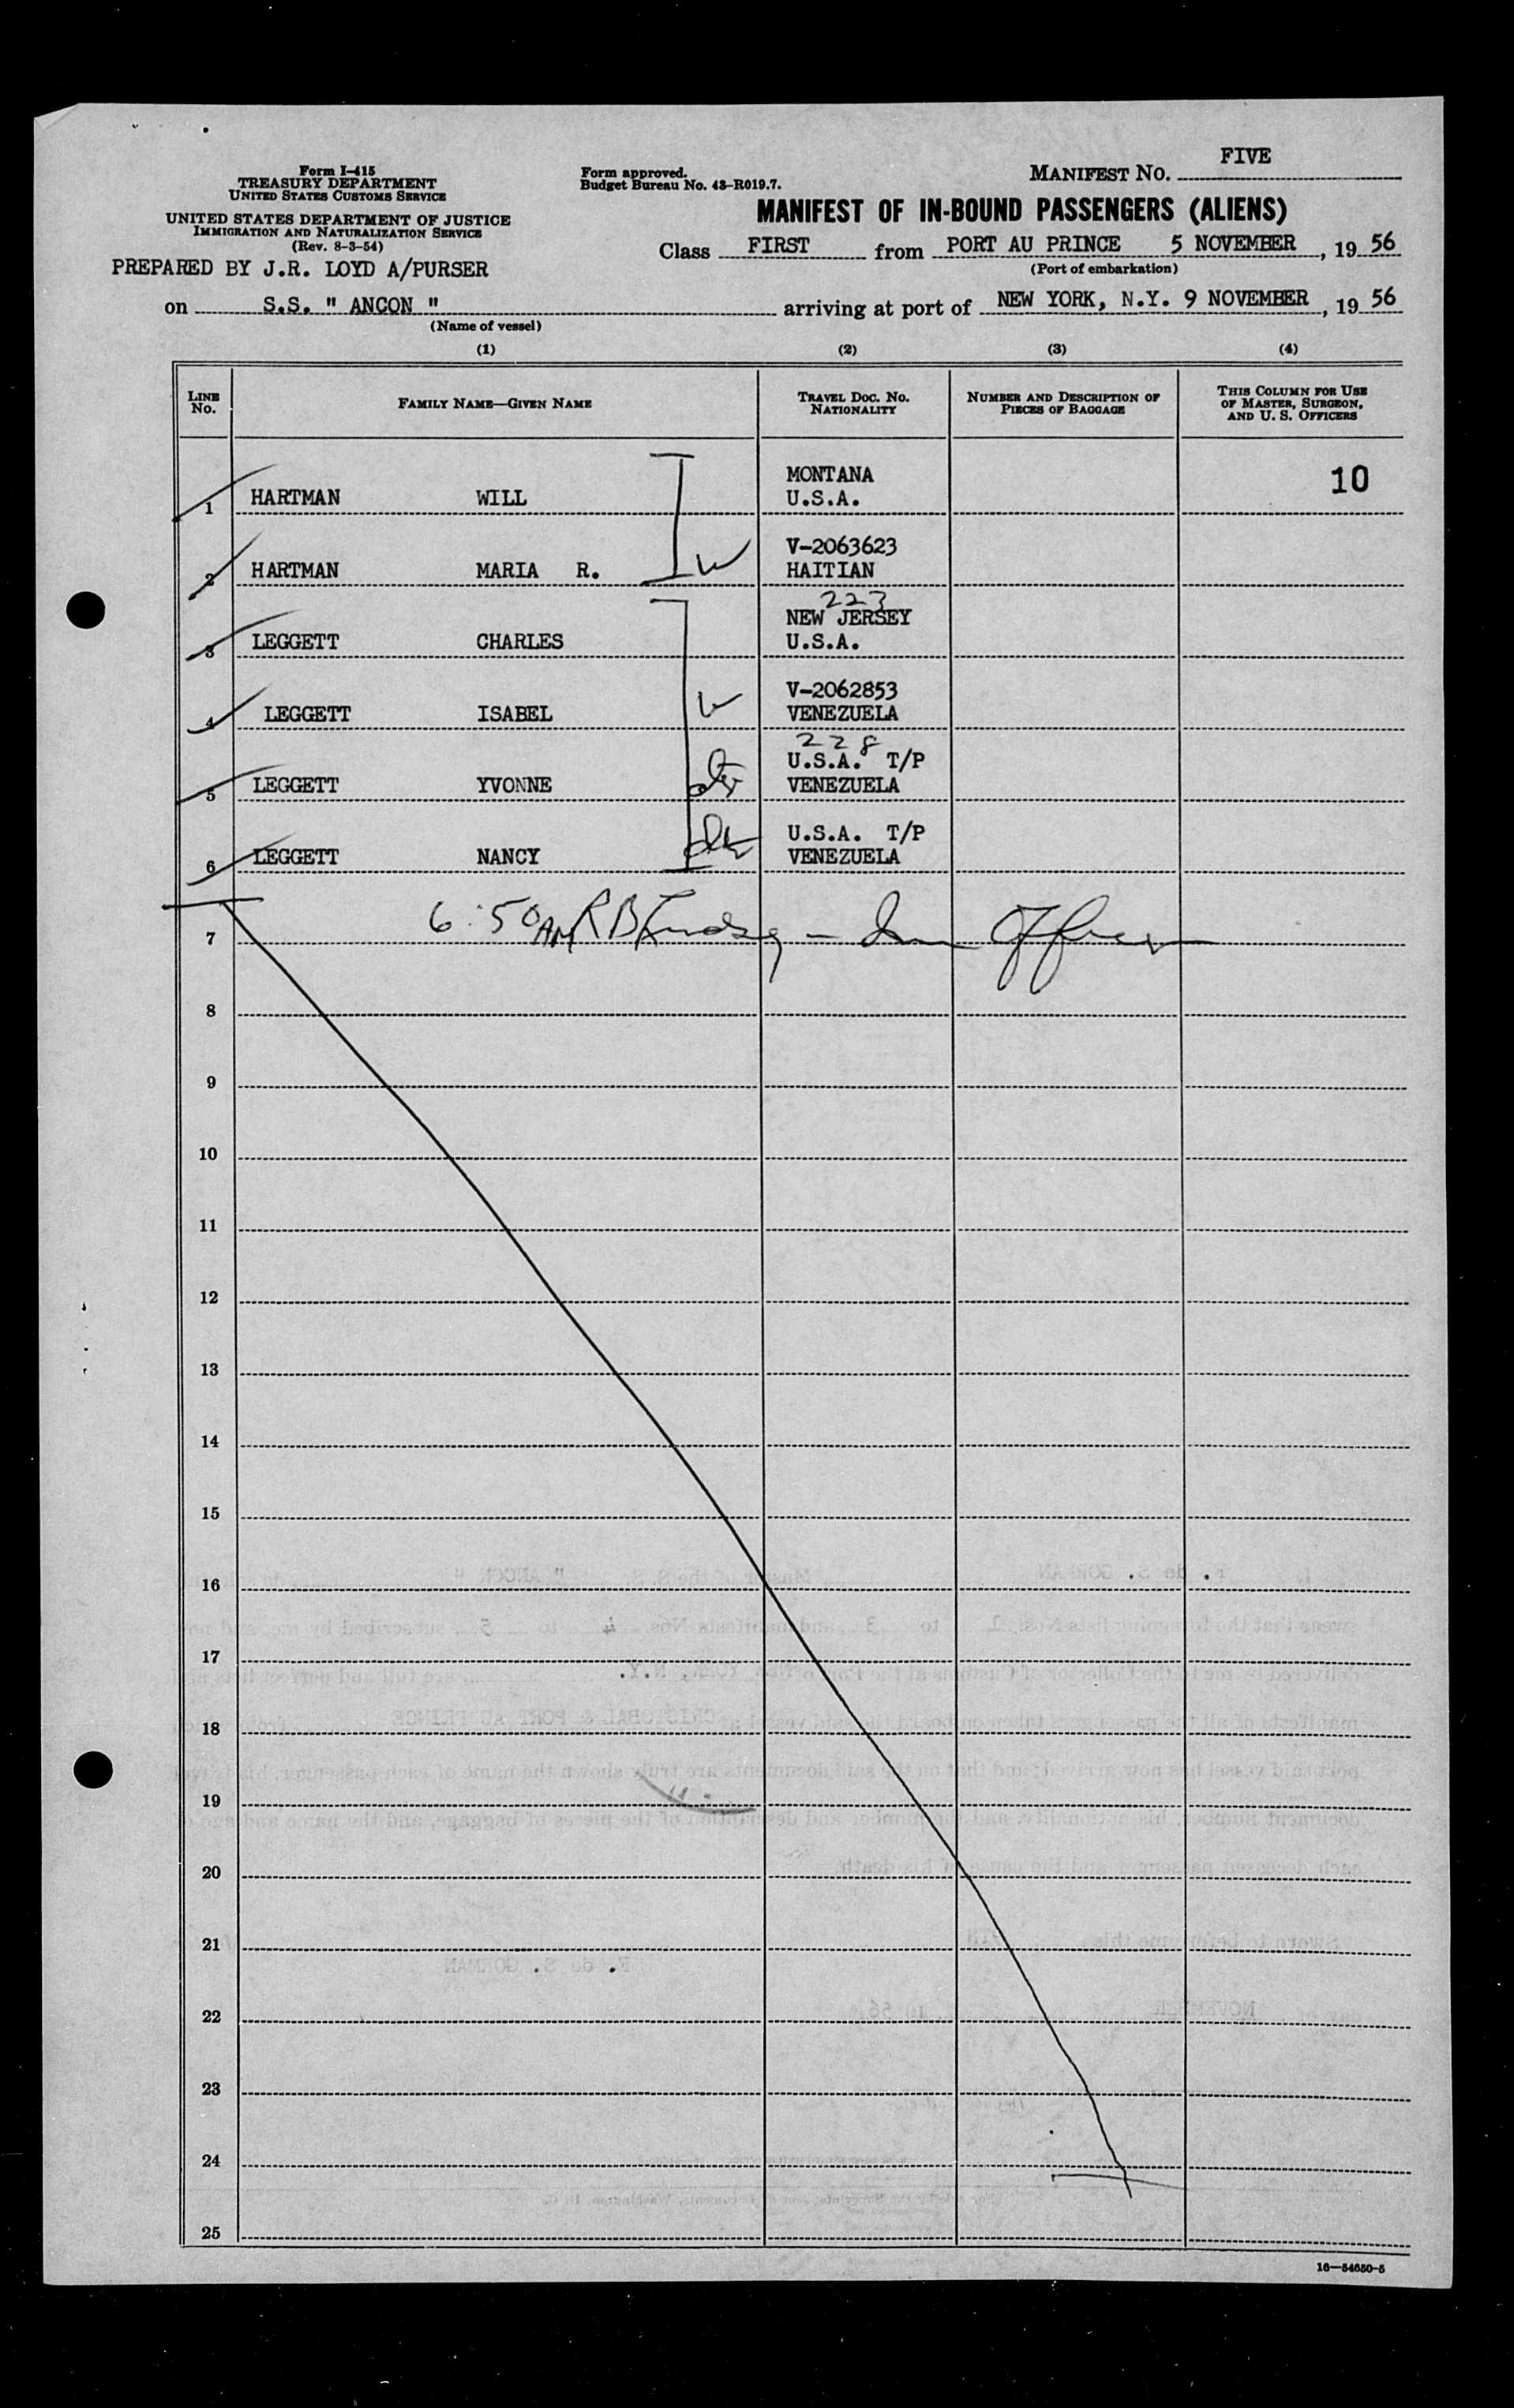 Form I-415
TREASURY DEPARTMENT
UNITED STATES CUSTOMS SERVICE
UNITED STATES DEPARTMENT OF JUSTICE
IMMIGRATION AND NATURALIZATION SERVICE
(Rev. 8-3-54)
PREPARED BY J.R. LOYD A/PURSER
Form approved.
Budget Bureau No. 43-R019.7.
MANIFEST NO. FIVE
MANIFEST OF IN-BOUND PASSENGERS (ALIENS)
Class FIRST from PORT AU PRINCE 5 NOVEMBER, 19 56
(Port of embarkation)
on S.S. " ANCON " arriving at port of NEW YORK, N.Y. 9 NOVEMBER, 19 56
(Name of vessel)
(1) (2) (3) (4)
LINE NO. FAMILY NAME—GIVEN NAME TRAVEL DOC. NO. NATIONALITY NUMBER AND DESCRIPTION OF PIECES OF BAGGAGE THIS COLUMN FOR USE OF MASTER, SURGEON, AND U. S. OFFICERS
MONTANA 10
1 HARTMAN WILL U.S.A.
V-2063623
2 HARTMAN MARIA R. W HAITIAN
223
NEW JERSEY
3 LEGGETT CHARLES U.S.A.
V-2062853
4 LEGGETT ISABEL VENEZUELA
228
U.S.A. T/P
5 LEGGETT YVONNE VENEZUELA
U.S.A. T/P
6 LEGGETT NANCY VENEZUELA
7 6:50 AM R B Officer
8
9
10
11
12
13
14
15
16
17
18
19
20
21
22
23
24
25
16—54650-5